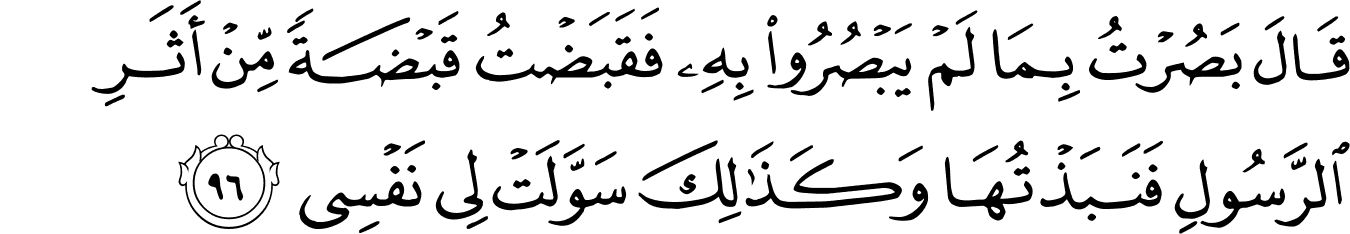 قَالَ بَصُرْتُ بِمَا لَمْ يَبْصُرُوا۟ بِهِۦ فَقَبَضْتُ قَبْضَةً مِّنْ أَثَرِ
ٱلرَّسُولِ فَنَبَذْتُهَا وَكَذَٰلِكَ سَوَّلَتْ لِى نَفْسِى ٩٦